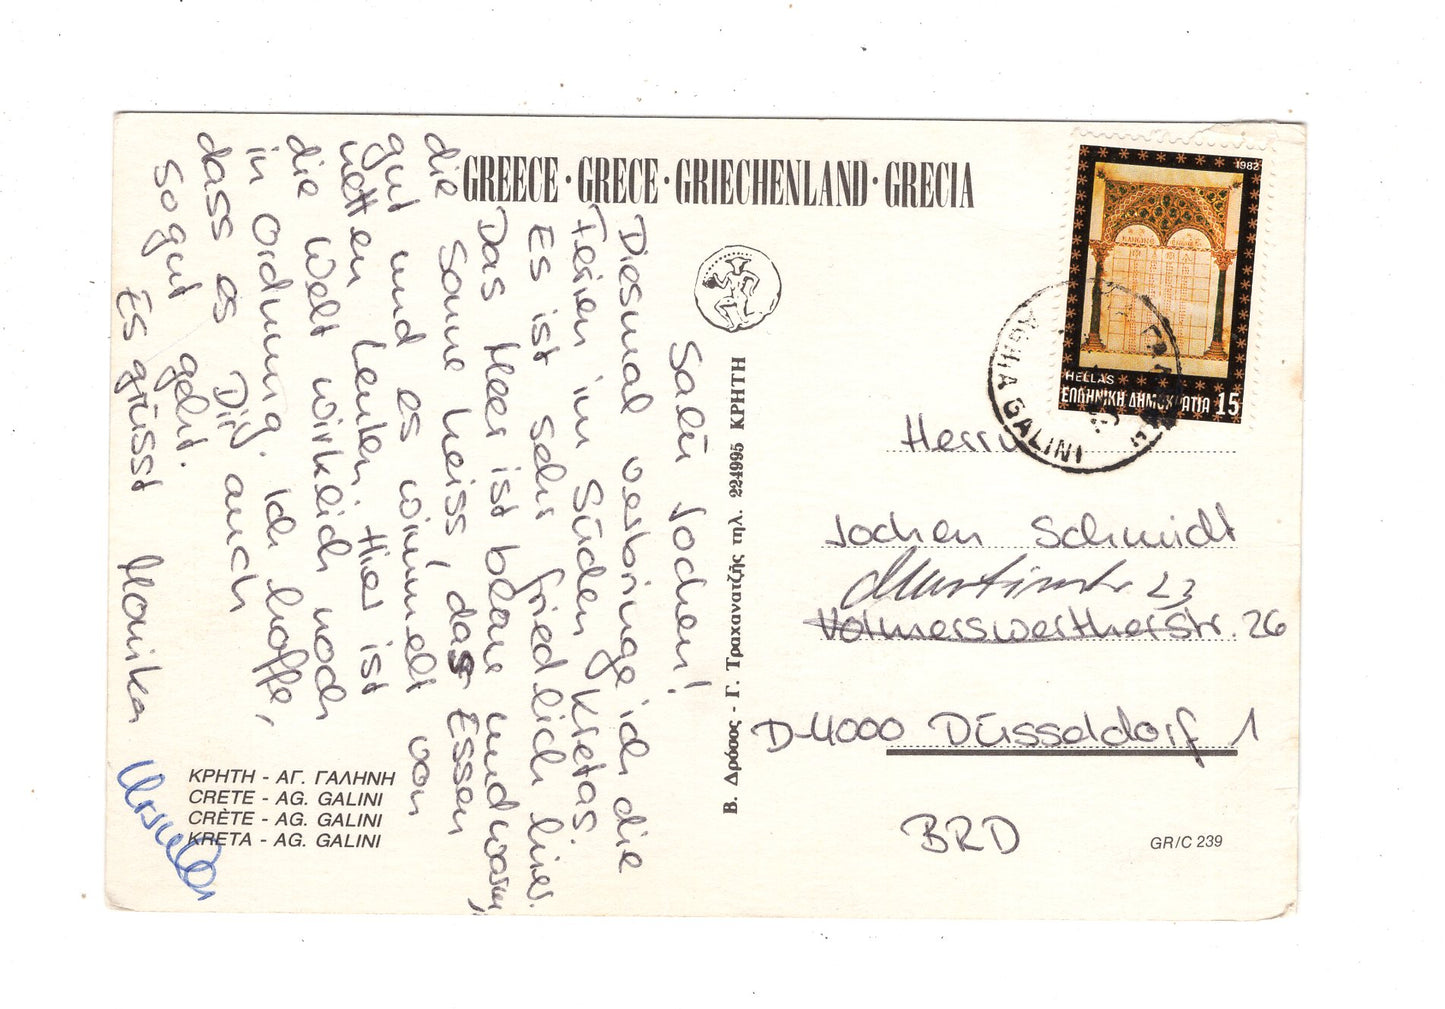 GREECE · GRECE · GRIECHENLAND · GRECIA
Salü Jochen!
Diesmal verbringe ich die
Ferien im Süden Kretas.
Es ist sehr friedlich hier.
Das Meer ist blau und warm,
die Sonne heiss, das Essen
gut und es wimmelt von
netten Leuten. Hier ist
die Welt wirklich noch
in Ordnung. Ich hoffe,
dass es Dir auch
so gut geht.
Es grüsst Monika
Ursula
ΚΡΗΤΗ - ΑΓ. ΓΑΛΗΝΗ
CRETE - AG. GALINI
CRÈTE - AG. GALINI
KRETA - AG. GALINI
Β. Δρόσος - Γ. Τραχανατζής τηλ. 224995 ΚΡΗΤΗ
1982
HELLAS
ΕΛΛΗΝΙΚΗ ΔΗΜΟΚΡΑΤΙΑ 15
AGHIA GALINI
Herrn
Jochen Schmidt
23
Volmerswertherstr. 26
D-4000 Düsseldorf 1
BRD
GR/C 239